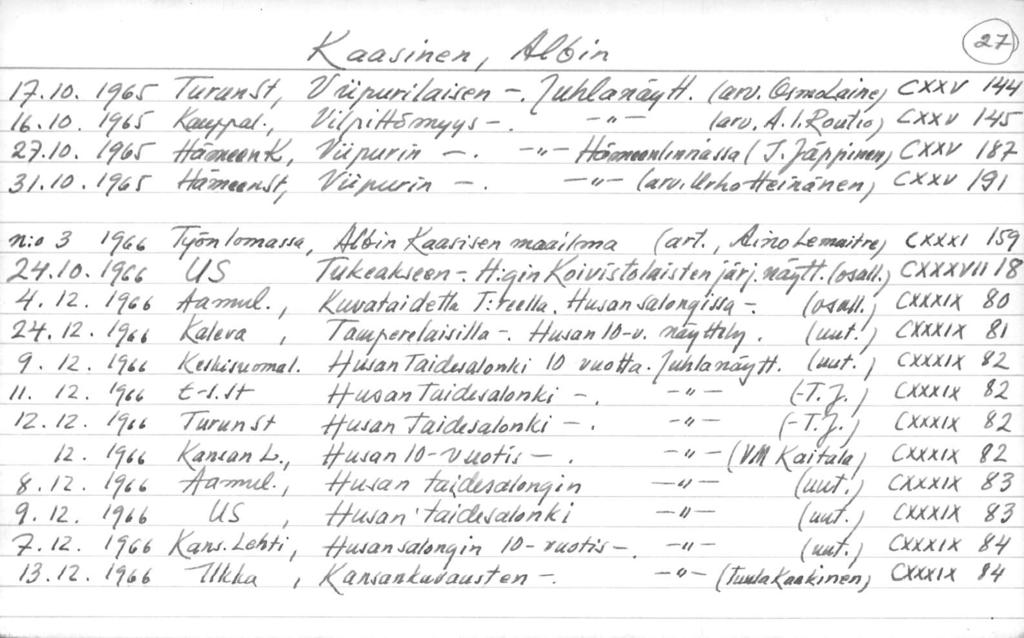 27
Kaasinen, Albin
17.10. 1965 TurunSt, Viipurilaisen -. Juhlanäytt. (arv. OsmoLaine) CXXV 144
16.10. 1965 Kauppal., Vilpittömyys -. -"- (arv. A.I.Routio) CXXV 145
27.10. 1965 HämeenK, Viipurin -. -"- Hämeenlinnassa (J.Jäppinen) CXXV 187
31.10. 1965 HämeenSt, Viipurin -. -"- (arv. Urho Heinänen) CXXV 191
n:o 3 1966 Työn lomassa, Albin Kaasisen maailma (art., Aino Lemaitre) CXXXI 159
24.10. 1966 US Tukeakseen -. H:gin Koivistolaisten järj. näytt. (osall.) CXXXVII 18
4. 12. 1966 Aamul., Kuvataidetta T:reella. Husan salongissa -. (osall.) CXXXIX 80
24. 12. 1966 Kaleva, Tamperelaisilla -. Husan 10-v. näyttely. (uut.) CXXXIX 81
9. 12. 1966 Keskisuomal. Husan Taidesalonki 10 vuotta. Juhlanäytt. (uut.) CXXXIX 82
11. 12. 1966 E-S.St Husan Taidesalonki -. -"- (-T.J.) CXXXIX 82
12. 12. 1966 TurunSt Husan Taidesalonki -. -"- (-T.J.) CXXXIX 82
12. 1966 Kansan L., Husan 10-vuotis -. -"- (VM Kaitala) CXXXIX 82
8. 12. 1966 Aamul., Husan taidesalongin -"- (uut.) CXXXIX 83
9. 12. 1966 US, Husan taidesalonki -"- (uut.) CXXXIX 83
7. 12. 1966 Kans. Lehti, Husan salongin 10-vuotis -. -"- (uut.) CXXXIX 84
13. 12. 1966 Ilkka, Kansankuvausten -. -"- (Tuula Kaakinen) CXXXIX 84